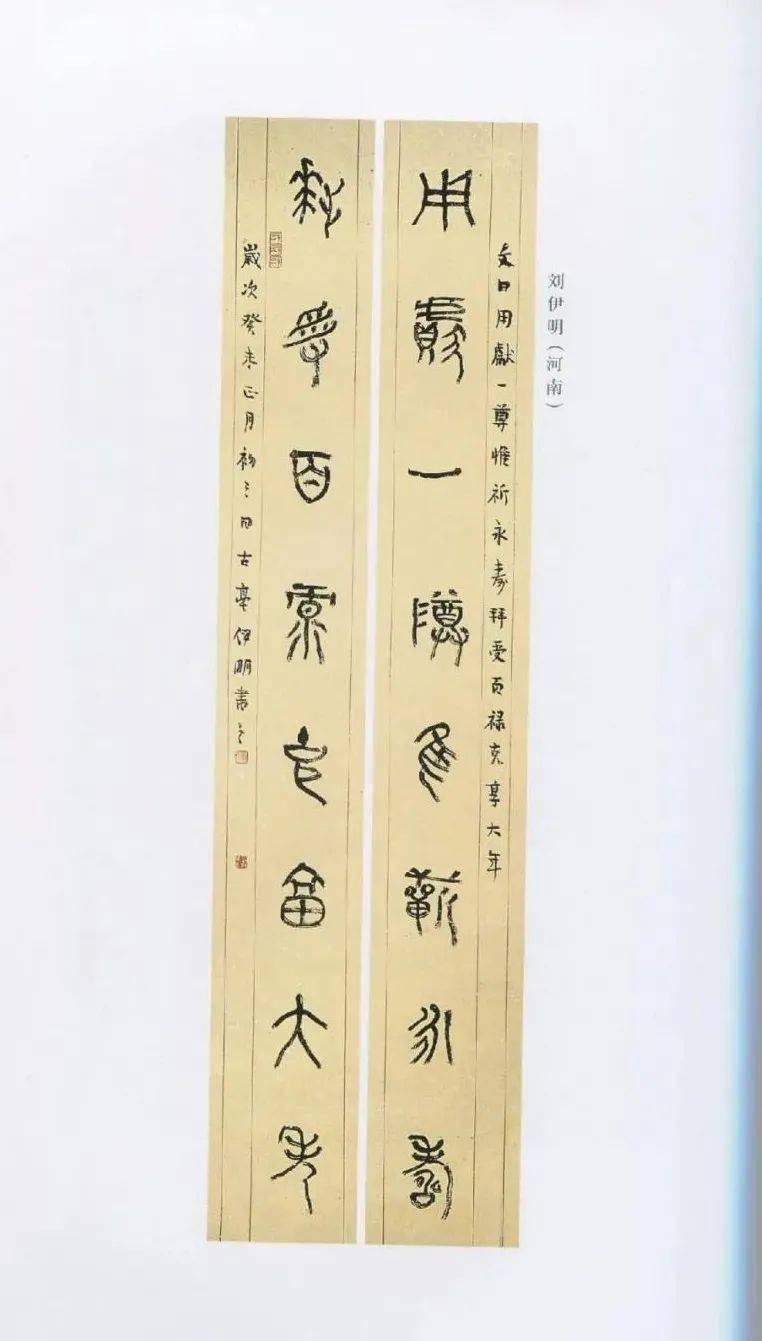 刘伊明（河南）
文曰用獻一尊惟祈永壽拜受百禄克享大年
用獻一尊惟祈永壽
拜受百禄克享大年
歲次癸未正月初三日古亳伊明書之